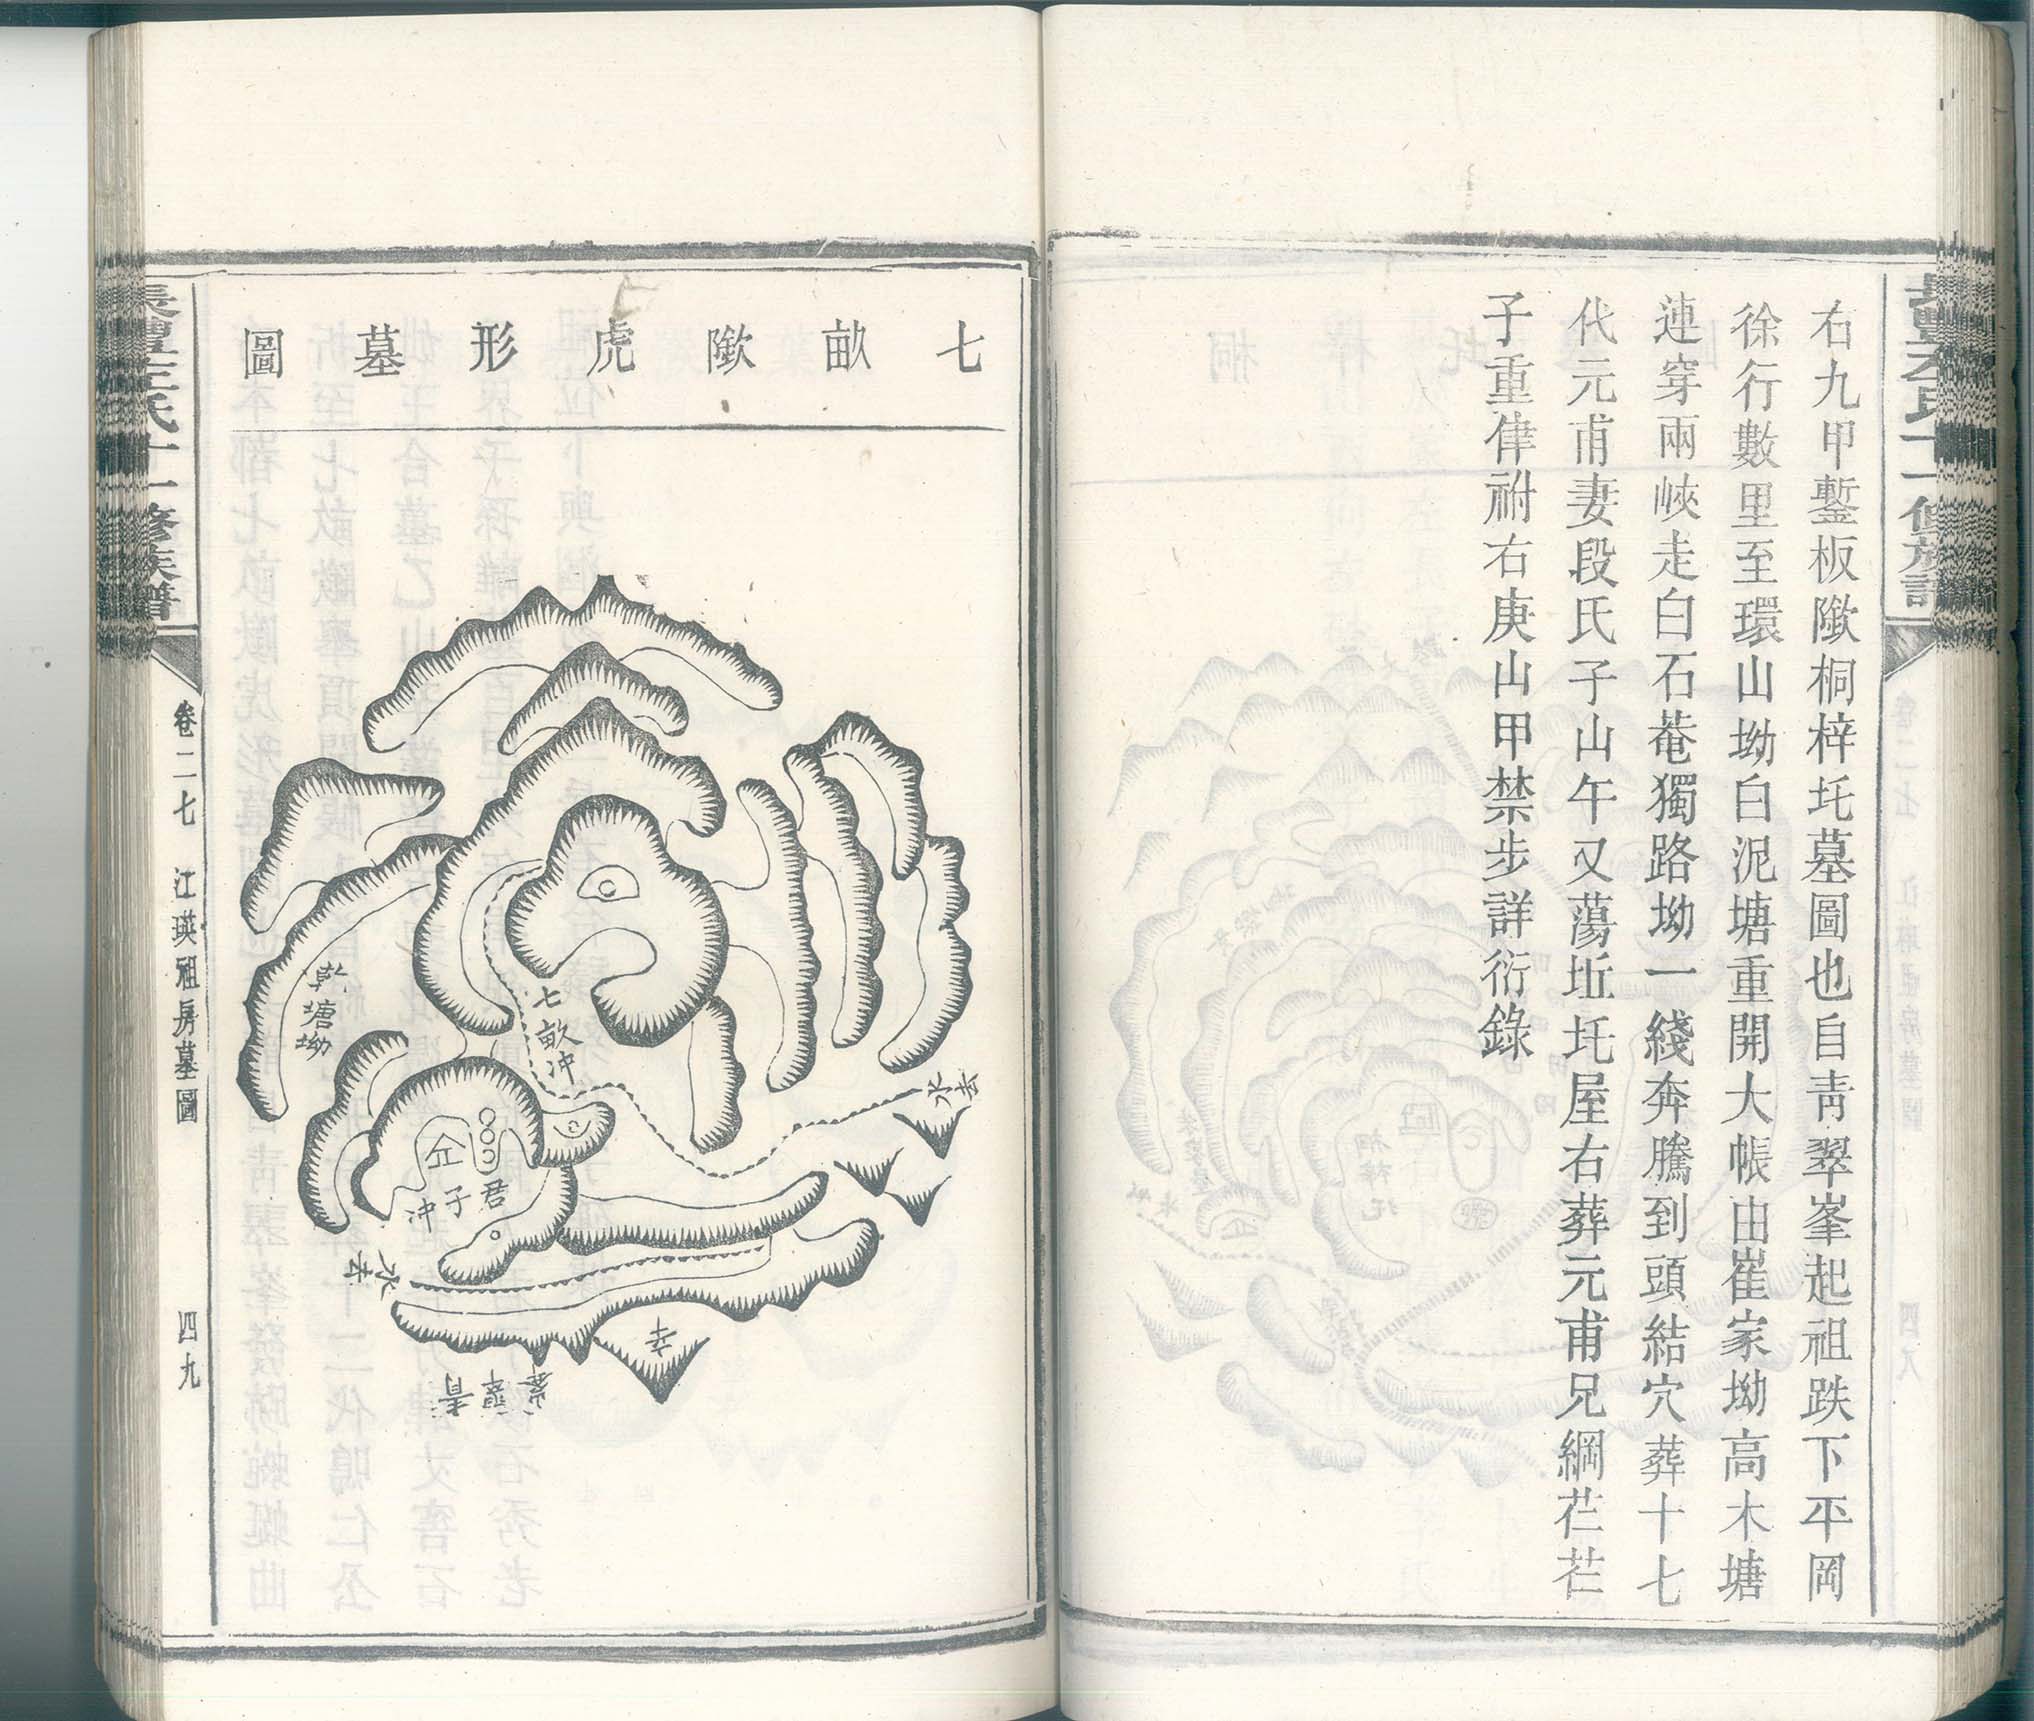 右九甲鏨板歘桐梓圫墓圖也自青翠峯起祖跌下平岡
徐行數里至環山坳白泥塘重開大帳由崔家坳高木塘
連穿兩峽走白石菴獨路坳一綫奔騰到頭結穴葬十七
代元甫妻段氏子山午又蕩坵圫屋右葬元甫兄綱芢芢
子重侓祔右庚山甲禁步詳衍錄
七畝歘虎形墓圖
乾塘坳
七畝冲
水去
君子冲
水去
辛
青翠峯
氏十一修族譜
卷二七
江瑛祖房墓圖
四九